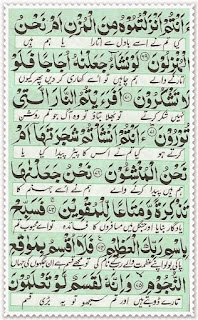 ءَاَنْتُمْ اَنْزَلْتُمُوْهُ مِنَ الْمُزْنِ اَمْ نَحْنُ
کیا تم نے اسے بادل سے اتارا یا ہم ہیں
الْمُنْزِلُوْنَ ۝ لَوْ نَشَآءُ جَعَلْنٰهُ اُجَاجًا فَلَوْ
اتارنے والے ہم چاہیں تو اسے کھاری کردیں پھر کیوں
لَا تَشْكُرُوْنَ ۝ اَفَرَءَيْتُمُ النَّارَ الَّتِيْ
نہیں شکر کرتے تو بھلا بتاؤ تو وہ آگ جو تم روشن
تُوْرُوْنَ ۝ ءَاَنْتُمْ اَنْشَاْتُمْ شَجَرَتَهَاۤ اَمْ
کرتے ہو کیا تم نے اس کا پیڑ پیدا کیا یا
نَحْنُ الْمُنْشِـُٔوْنَ ۝ نَحْنُ جَعَلْنٰهَا
ہم ہیں پیدا کرنے والے ہم نے اسے جہنم کا
تَذْكِرَةً وَّمَتَاعًا لِّلْمُقْوِيْنَ ۝ فَسَبِّحْ
یادگار بنایا اور جنگل میں مسافروں کا فائدہ تو اے محبوب تم
بِاسْمِ رَبِّكَ الْعَظِيْمِ ۝ فَلَاۤ اُقْسِمُ بِمَوٰقِعِ
پاکی بولو اپنے عظمت والے رب کے نام کی تو مجھے قسم ہے ان جگہوں کی جہاں
النُّجُوْمِ ۝ وَاِنَّهٗ لَقَسَمٌ لَّوْ تَعْلَمُوْنَ
تارے ڈوبتے ہیں اور تم سمجھو تو یہ بڑی قسم